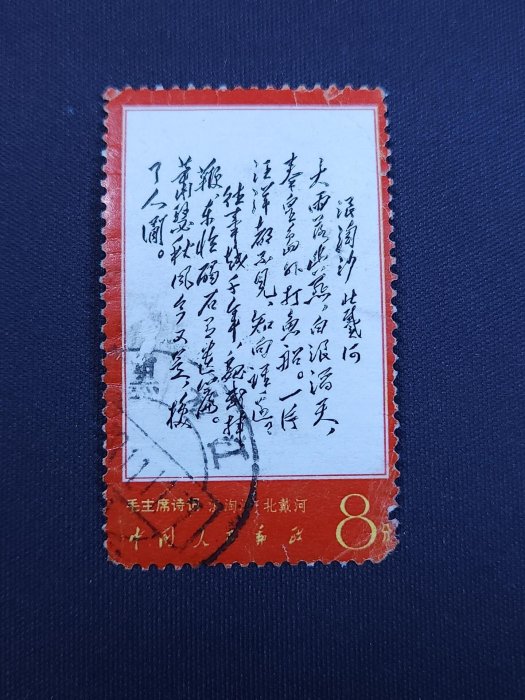 浪淘沙 北戴河
大雨落幽燕,白浪滔天,
秦皇島外打魚船。一片
汪洋都不見,知向誰邊?
往事越千年,魏武揮
鞭,東臨碣石有遺篇。
蕭瑟秋風今又是,換
了人間。
毛主席诗词 淘 北戴河
中国人民郵政
8分